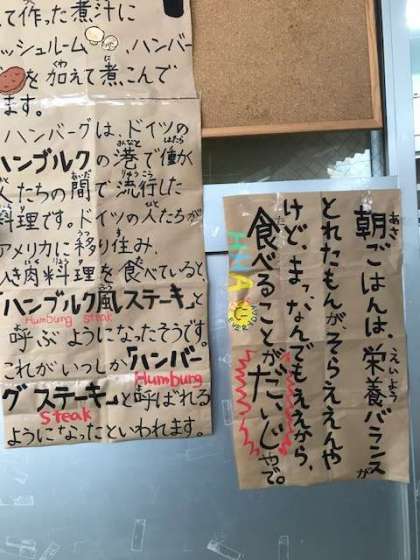 て作った煮汁に
ッシュルーム、ハンバー
を加えて煮こんで
ます。
ハンバーグは、ドイツの
ハンブルクの港で働く
人たちの間で流行した
料理です。ドイツの人たちが
アメリカに移り住み、
ひき肉料理を食べていると
「ハンブルク風ステーキ」と
Humburg Steak
呼ぶようになったそうです。
これがいつしか「ハンバー
Humburg
グステーキ」と呼ばれる
Steak
ようになったといわれます。
朝ごはんは、栄養バランスが
とれたもんが、そらええんや
けど、まっ、なんでもええから、
食べることがだいじやで。